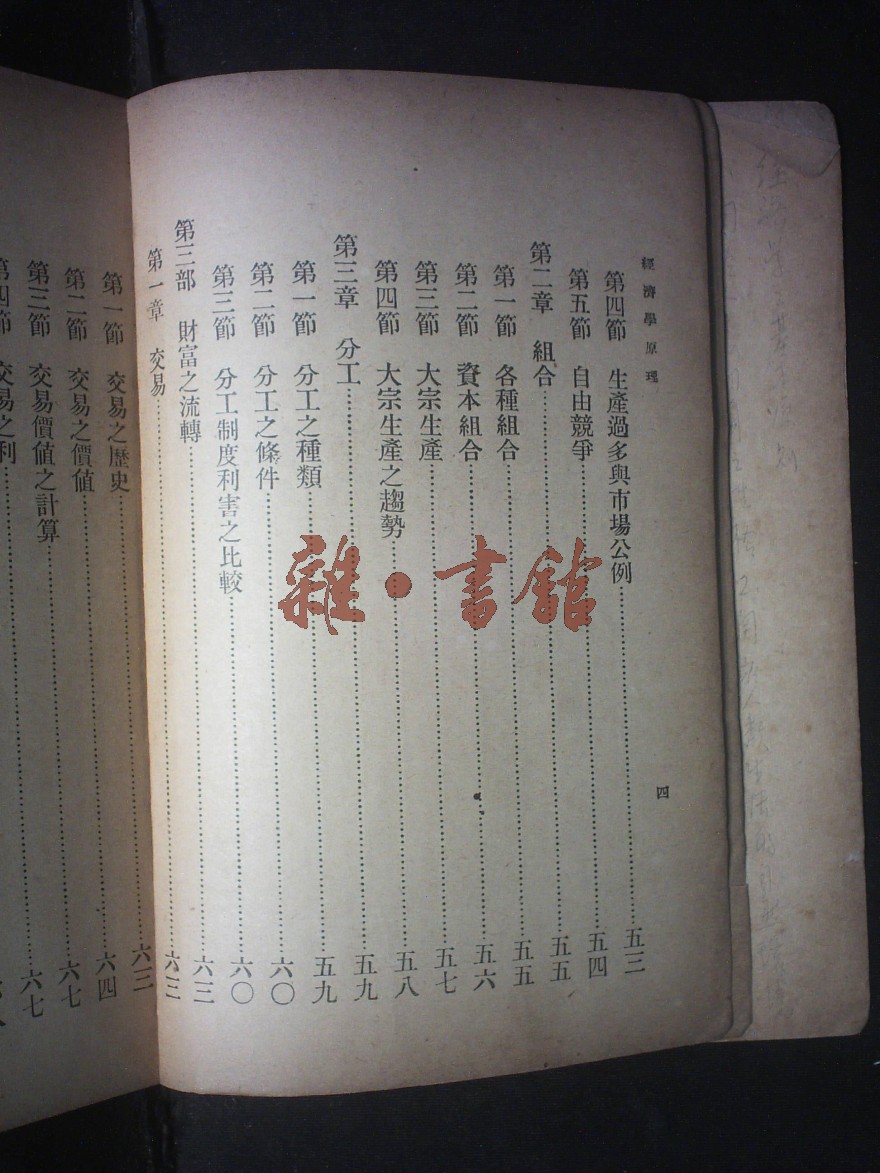 經濟學原理 四
第四節 生產過多與市場公例……五三
第五節 自由競爭……五四
第二章 組合……五五
第一節 各種組合……五五
第二節 資本組合……五六
第三節 大宗生產……五七
第四節 大宗生產之趨勢……五八
第三章 分工……五九
第一節 分工之種類……五九
第二節 分工之條件……六〇
第三節 分工制度利害之比較……六〇
第三部 財富之流轉……六三
第一章 交易……六三
第一節 交易之歷史……六三
第二節 交易之價値……六四
第三節 交易價値之計算……六七
第四節 交易之利……六七
雜·書館